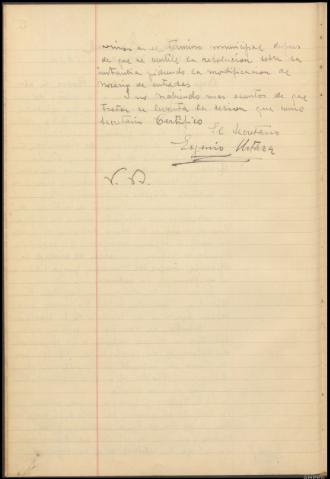 vinos en el termino municipal despues
de que se notifique la resolucion sobre la
instantia pidiendo la modificacion de
horario de entradas
Y no habiendo mas asuntos de que
tratar se levanta la sesion que como
secretario Certifico
El Secretario
Eugenio
V. B.